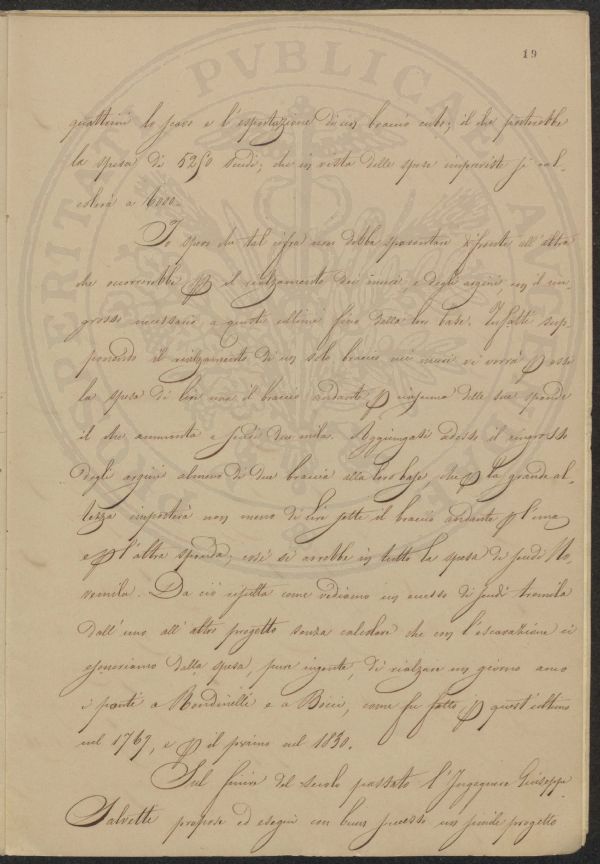 19
quattrini lo scavo e l'esportazione di un braccio cubo; il che porterebbe
la spesa di 5250 Scudi; che in vista delle spese impreviste si cal-
colerà a 6000.
Io spero che tal cifra non debba spaventare di fronte all'altra
che occorrerebbe p il rialzamento dei muri e degli argini con il rin-
grosso necessario a questi ultimi fino dalla loro base. Infatti sup-
ponendo il rialzamento di un solo braccio nei muri vi vorrà p essi
la spesa di lire una il braccio andante p ciascuna delle sue sponde
il che ammonta a scudi due mila. Aggiungasi adesso il ringrosso
degli argini almeno di due braccia alla loro base, che p la grande al-
tezza importerà non meno di lire sette il braccio andante p l'una
e p l'altra sponda, così si avrebbe in tutto la spesa di scudi No-
vemila. Da ciò risulta come vediamo un eccesso di scudi tremila
dall'uno all'altro progetto senza calcolare che con l'escavazione ci
esoneriamo dalla spesa, pure ingente, di rialzare un giorno anco
i ponti a Rondinelle e a Bocci, come fu fatto p quest'ultimo
nel 1767, e p il primo nel 1830.
Sul finire del secolo passato l'Ingegnere Giuseppe
Salvetti propose ed eseguì con buon successo un simile progetto
PVBLICAE